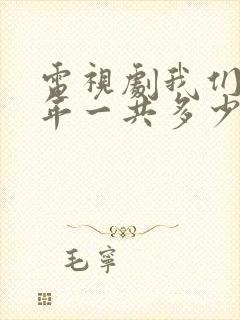 電視劇我们
年一共多少
毛寧